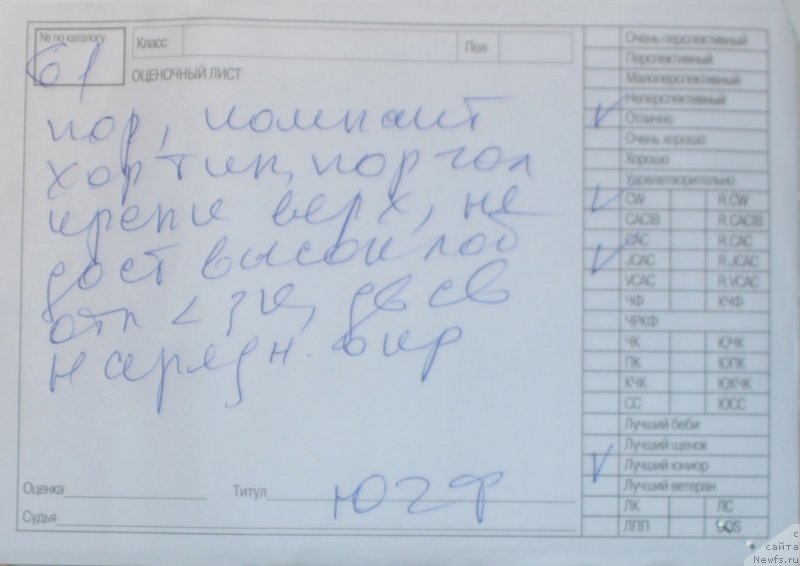 № по каталогу
61
Класс
Пол
ОЦЕНОЧНЫЙ ЛИСТ
пор, компакт
хор тип, пор гол
крепк верх, не
дост высок лоб
отл < зк, дв св
нарядн. окр
Оценка
Титул ЮЧФ
Судья
Очень перспективный
Перспективный
Малоперспективный
Неперспективный
Отлично
Очень хорошо
Хорошо
Удовлетворительно
CW R.CW
CACIB R.CACIB
CAC R.CAC
JCAC R.JCAC
VCAC R.VCAC
ЧФ КЧФ
ЧРКФ
ЧК ЮЧК
ПК ЮПК
КЧК ЮКЧК
СС ЮСС
Лучший беби
Лучший щенок
Лучший юниор
Лучший ветеран
ЛК ЛС
ЛПП BOS
с
сайта
Newfs.ru